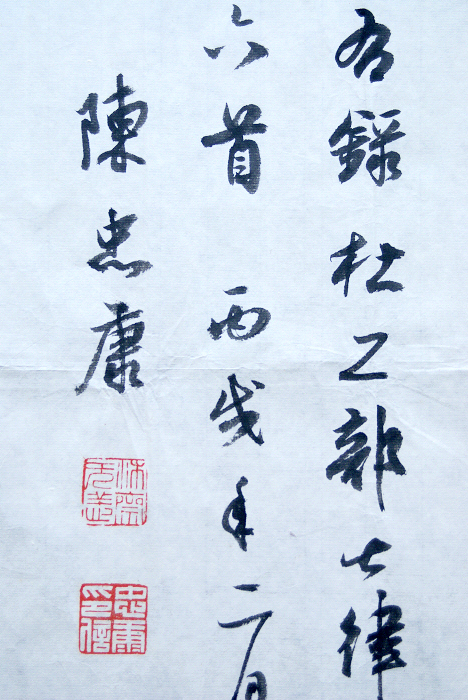 右錄杜工部七律
六首 丙戌年二月
陳忠康
忠康印信